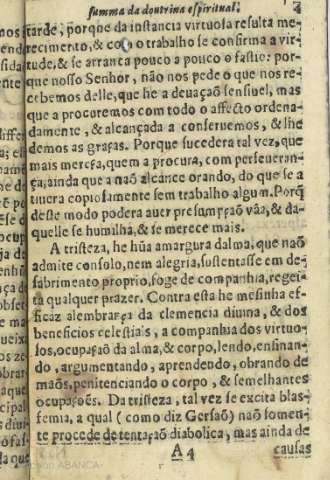 summa da doutrina espiritual. 4
tarde, porque da instancia virtuosa resulta me-
recimento, & co o trabalho se confirma a vir-
tude, & se arranca pouco a pouco o fastio: por-
que nosso Senhor, não nos pede o que nos re-
cebemos delle, que he a deuação sensiuel, mas
que a procuremos com todo o affecto ordena-
damente, & alcançada a conseruemos, & lhe
demos as graças. Porque sucedera tal vez, que
mais mereça, quem a procura, com perseueran-
ça, ainda que a naõ alcance orando, do que se a
tiuera copiosamente sem trabalho algum. Porq̃
deste modo podera auer presumpçaõ vãa, & da-
quelle se humilha, & se merece mais.
A tristeza, he hũa amargura dalma, que naõ
admite consolo, nem alegria, sustentasse em de-
sabrimento proprio, foge de companhia, regei-
ta qualquer prazer. Contra esta he mesinha ef-
ficaz alembrança da clemencia diuina, & dos
beneficios celestiais, a companhia dos virtuo-
sos, ocupação da alma, & corpo, lendo, ensinan-
do, argumentando, aprendendo, obrando de
maõs, penitenciando o corpo, & semelhantes
ocupações. Da tristeza, tal vez se excita blas-
femia, a qual (como diz Gersaõ) naõ somen-
te procede de tentaçaõ diabolica, mas ainda de
A 4 causas
ABANCA